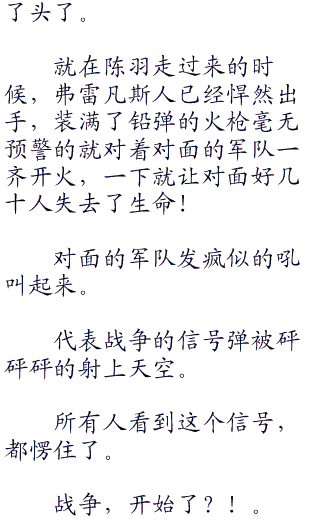 了头了。
就在陈羽走过来的时
候，弗雷凡斯人已经悍然出
手，装满了铅弹的火枪毫无
预警的就对着对面的军队一
齐开火，一下就让对面好几
十人失去了生命！
对面的军队发疯似的吼
叫起来。
代表战争的信号弹被砰
砰砰的射上天空。
所有人看到这个信号，
都愣住了。
战争，开始了？！。